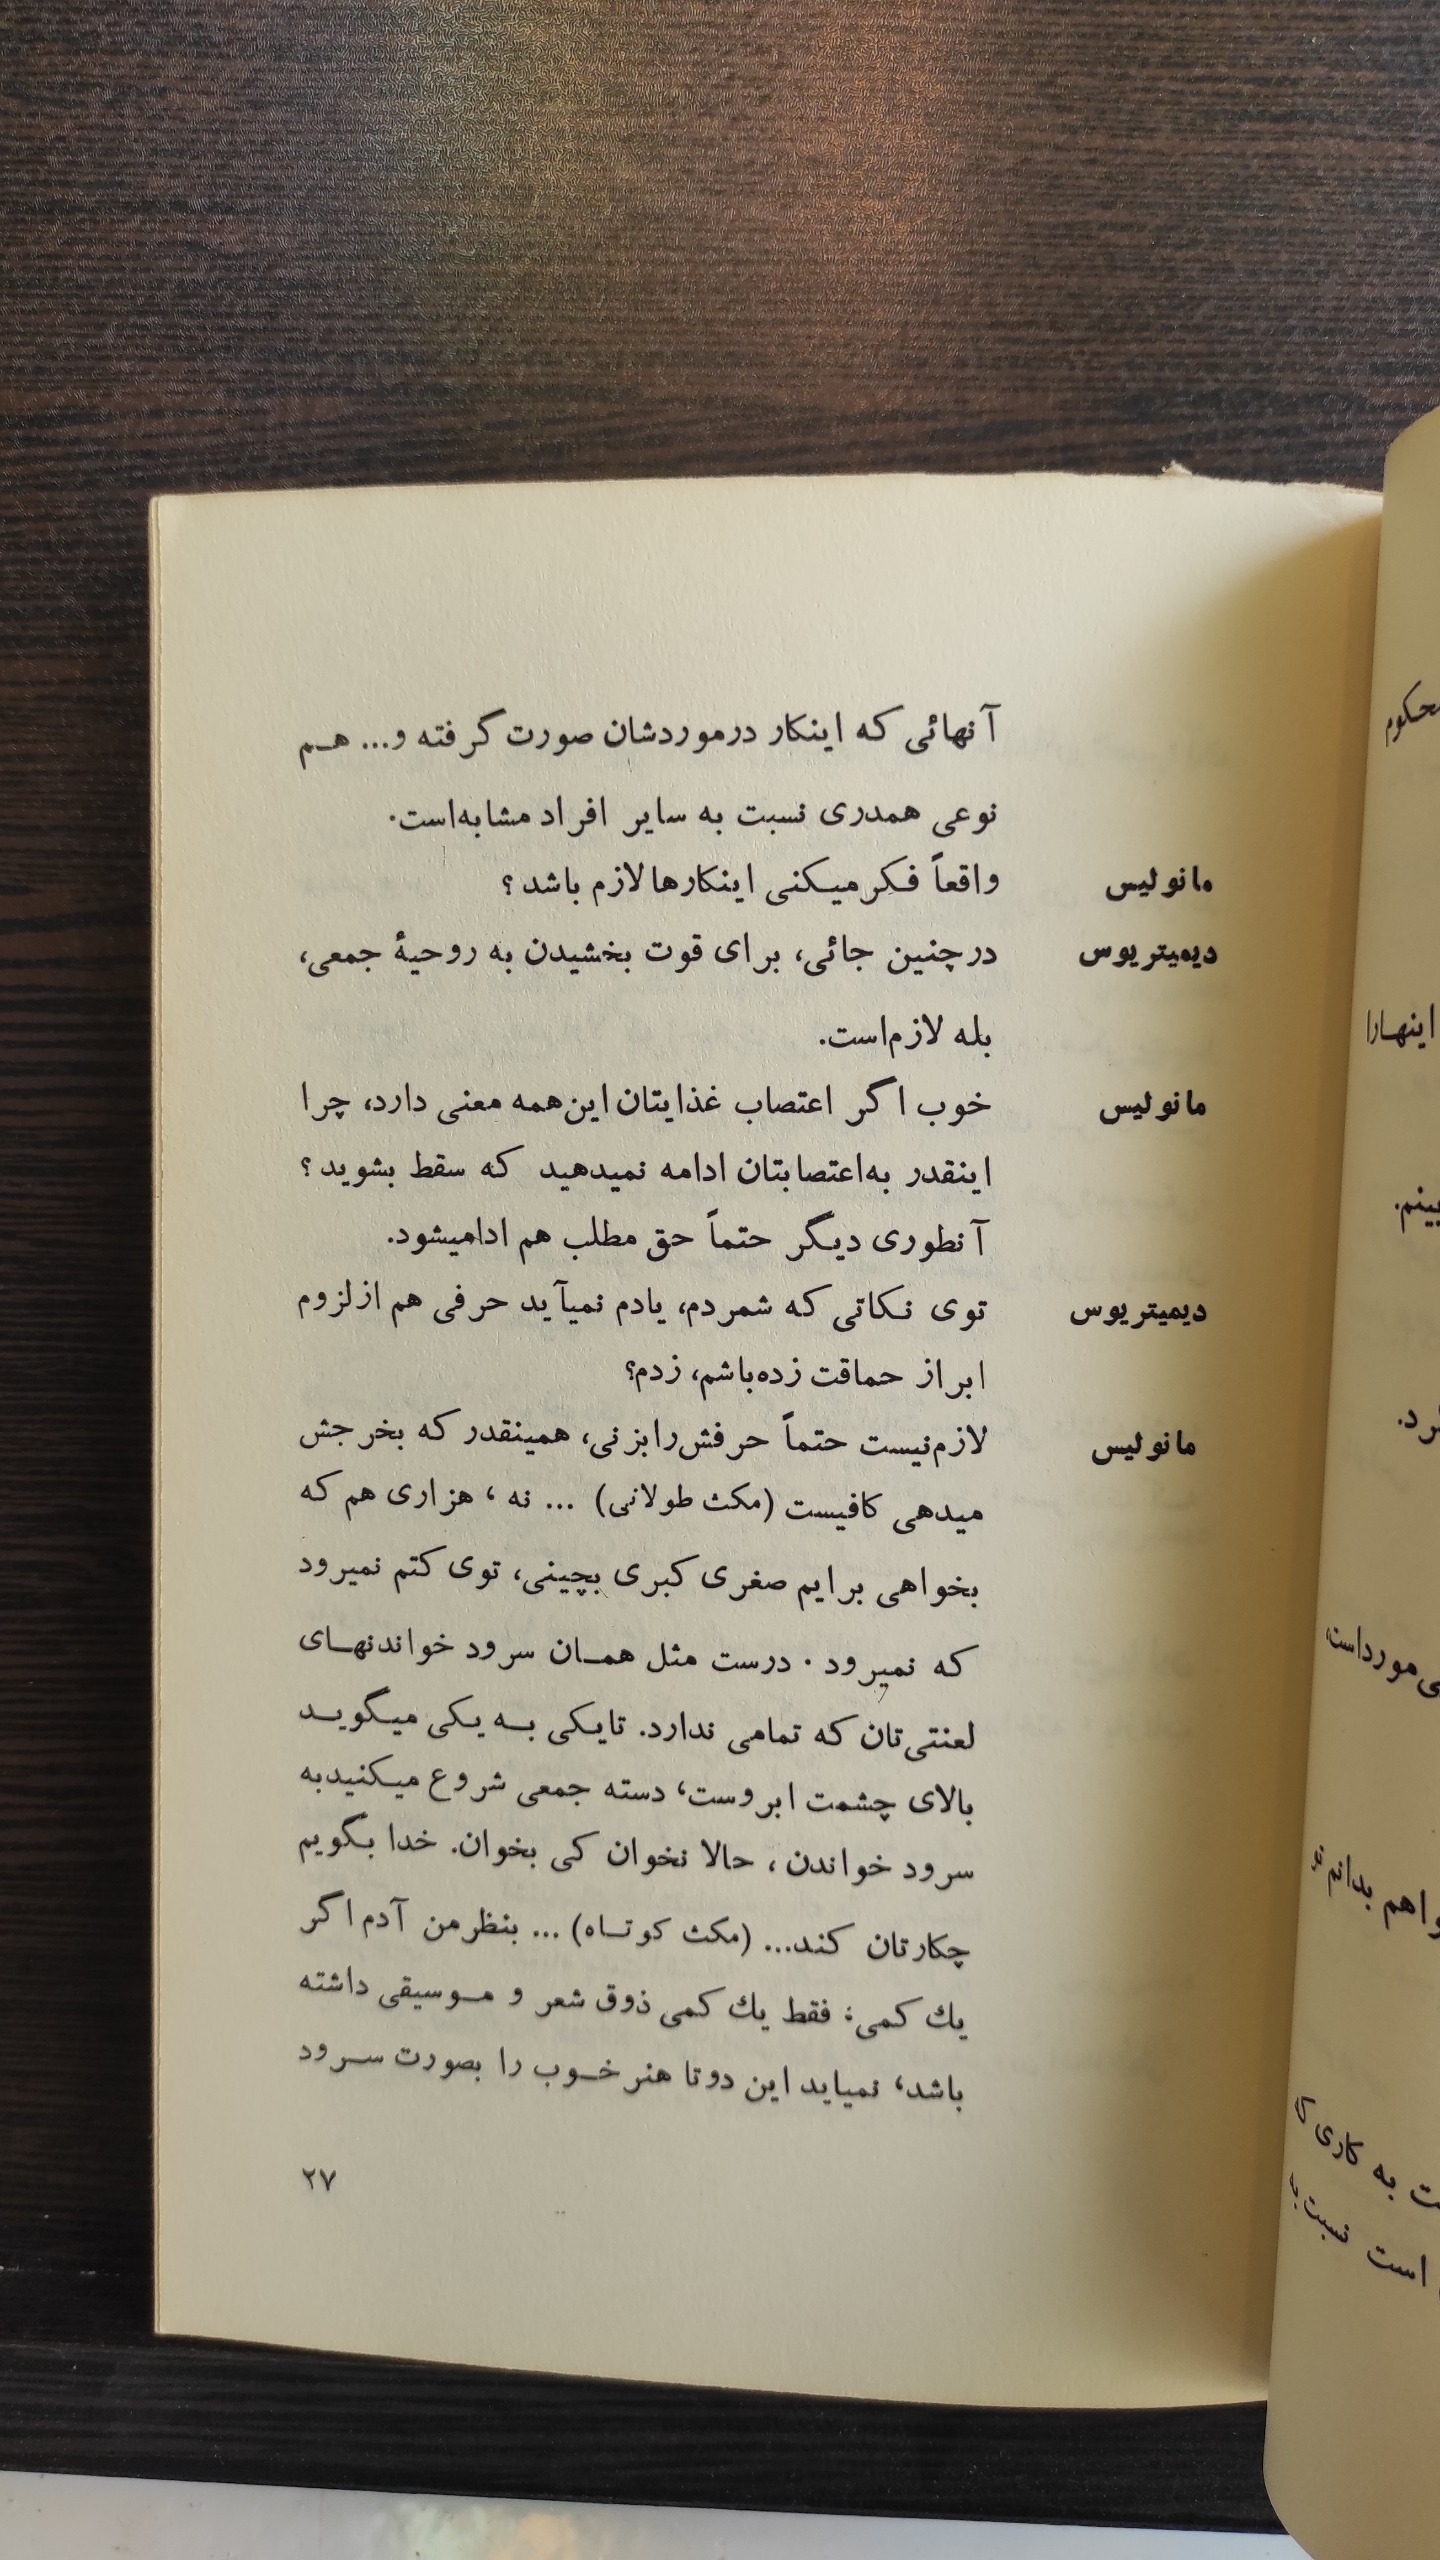 آنهائی که اینکار درموردشان صورت گرفته و... هم
نوعی همدری نسبت به سایر افراد مشابه‌است.
مانولیس واقعاً فکر میکنی اینکارها لازم باشد؟
دیمیتریوس درچنین جائی، برای قوت بخشیدن به روحیهٔ جمعی،
بله لازم‌است.
مانولیس خوب اگر اعتصاب غذایتان این‌همه معنی دارد، چرا
اینقدر به‌اعتصابتان ادامه نمیدهید که سقط بشوید؟
آنطوری دیگر حتماً حق مطلب هم ادامیشود.
دیمیتریوس توی نکاتی که شمردم، یادم نمیآید حرفی هم ازلزوم
ابراز حماقت زده‌باشم، زدم؟
مانولیس لازم‌نیست حتماً حرفش‌رابزنی، همینقدر که بخرجش
میدهی کافیست (مکث طولانی) ... نه، هزاری هم که
بخواهی برایم صغری کبری بچینی، توی کتم نمیرود
که نمیرود. درست مثل همان سرود خواندنهای
لعنتی‌تان که تمامی ندارد. تایکی به یکی میگوید
بالای چشمت ابروست، دسته جمعی شروع میکنیدبه
سرود خواندن، حالا نخوان کی بخوان. خدا بگویم
چکارتان کند... (مکث کوتاه) ... بنظرمن آدم اگر
یك کمی؛ فقط یك کمی ذوق شعر و موسیقی داشته
باشد، نمیاید این دوتا هنر خوب را بصورت سرود
۲۷
محکوم
اینهارا
مورداست،
واهم بدانم
ت به کاری
است نسبت به